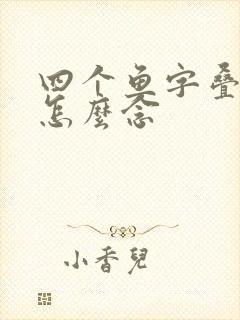 四个鱼字叠
怎麼念
小香兒